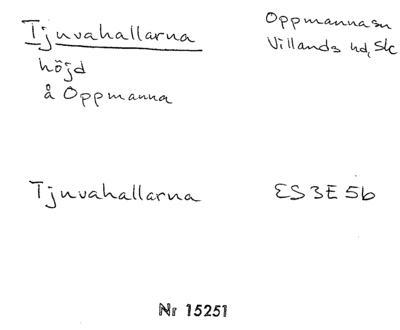 Tjuvahallarna
höjd
å Oppmanna
Oppmanna sn
Villands hd, Sk
Tjuvahallarna
ES 3E 5b
Nr 15251